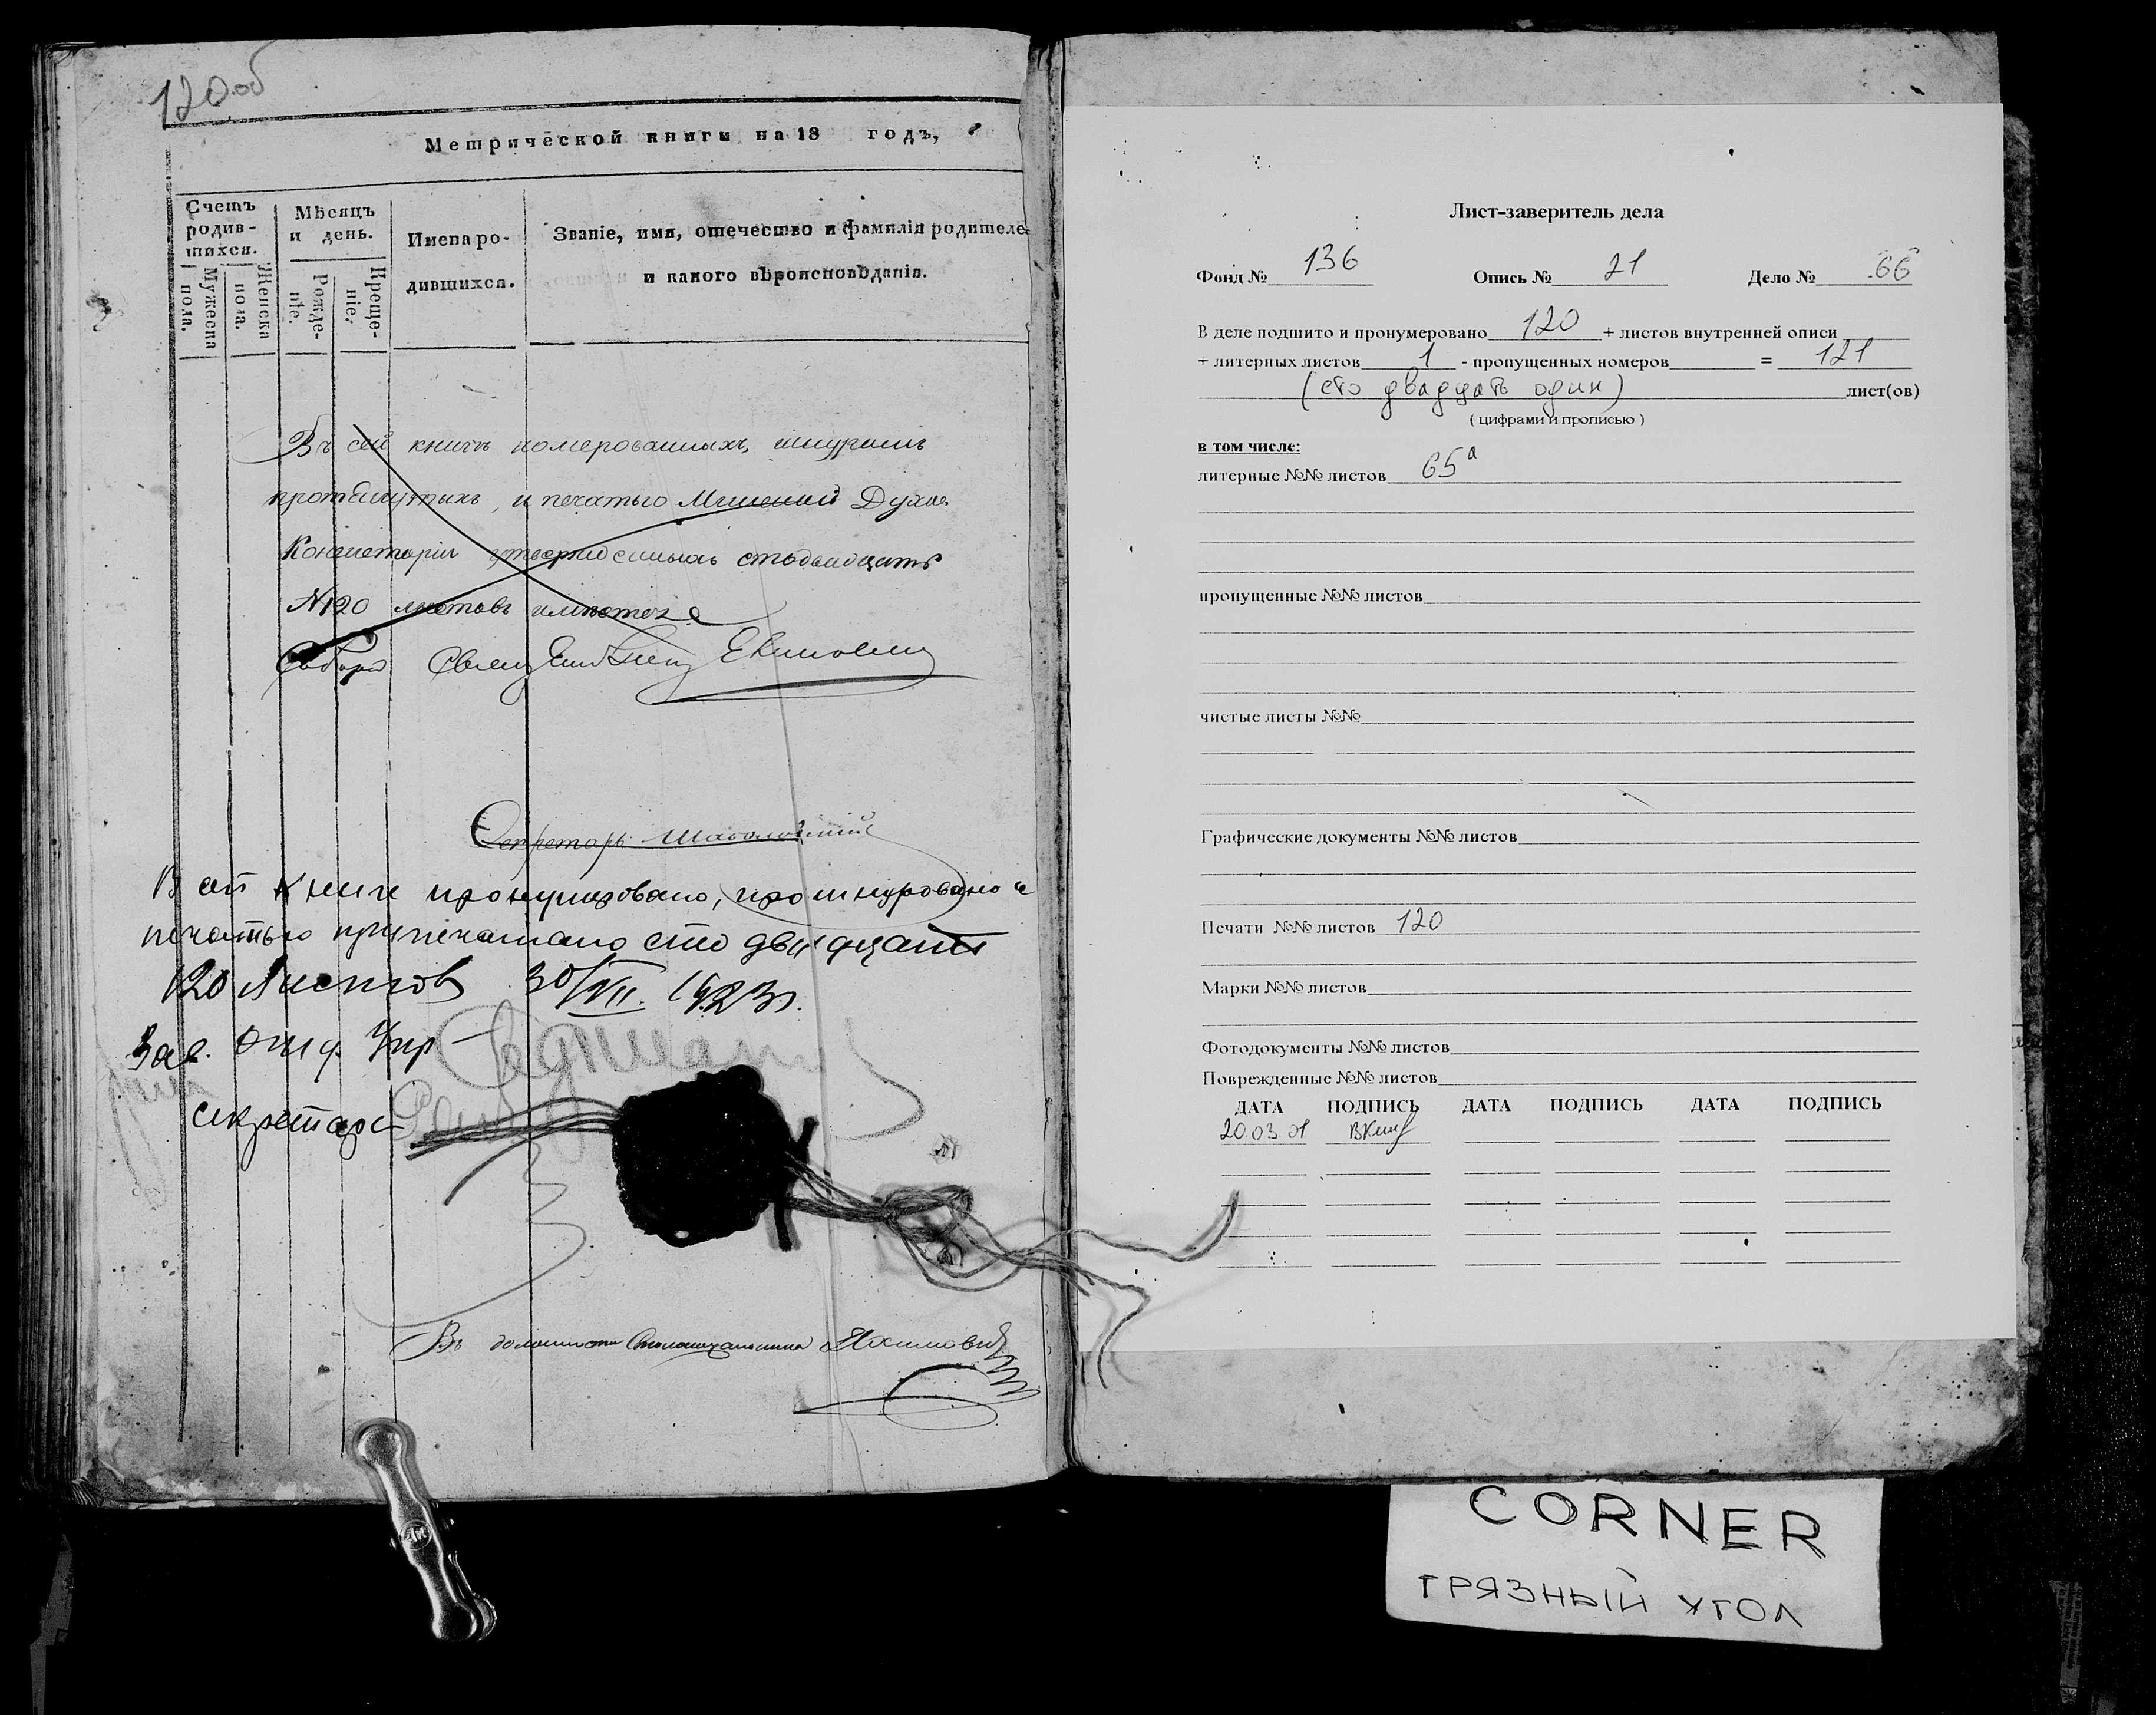 120 об
Метрической книги на 18 годъ,
Счетъ родив-шихся.
Мужеска пола.
Женска пола.
Мѣсяцъ и день.
Рожде-ніе.
Креще-ніе.
Имена ро-дившихся.
Званіе, имя, отечество и фамилія родителе
и какого вѣроисповѣданія.
Въ сей книгѣ номерованныхъ, шнуромъ
и печатью Минской Духов.
Консисторіи утвержденныхъ стодвадцать
N120 листовъ
Секретарь
В ей книге пронумеровано, прошнуровано и
печатью припечатано сто двадцать
120 Листов 30/VII. 1923г.
Зав. Упр
секретарь
Въ должности Столоначальника
Лист-заверитель дела
Фонд № 136 Опись № 21 Дело № 66
В деле подшито и пронумеровано 120 + листов внутренней описи
+ литерных листов 1 - пропущенных номеров = 121
(сто двадцать один) лист(ов)
( цифрами и прописью )
в том числе:
литерные №№ листов 65а
пропущенные №№ листов
чистые листы №№
Графические документы №№ листов
Печати №№ листов 120
Марки №№ листов
Фотодокументы №№ листов
Поврежденные №№ листов
ДАТА ПОДПИСЬ ДАТА ПОДПИСЬ ДАТА ПОДПИСЬ
20.03.01
CORNER
ГРЯЗНЫЙ УГОЛ